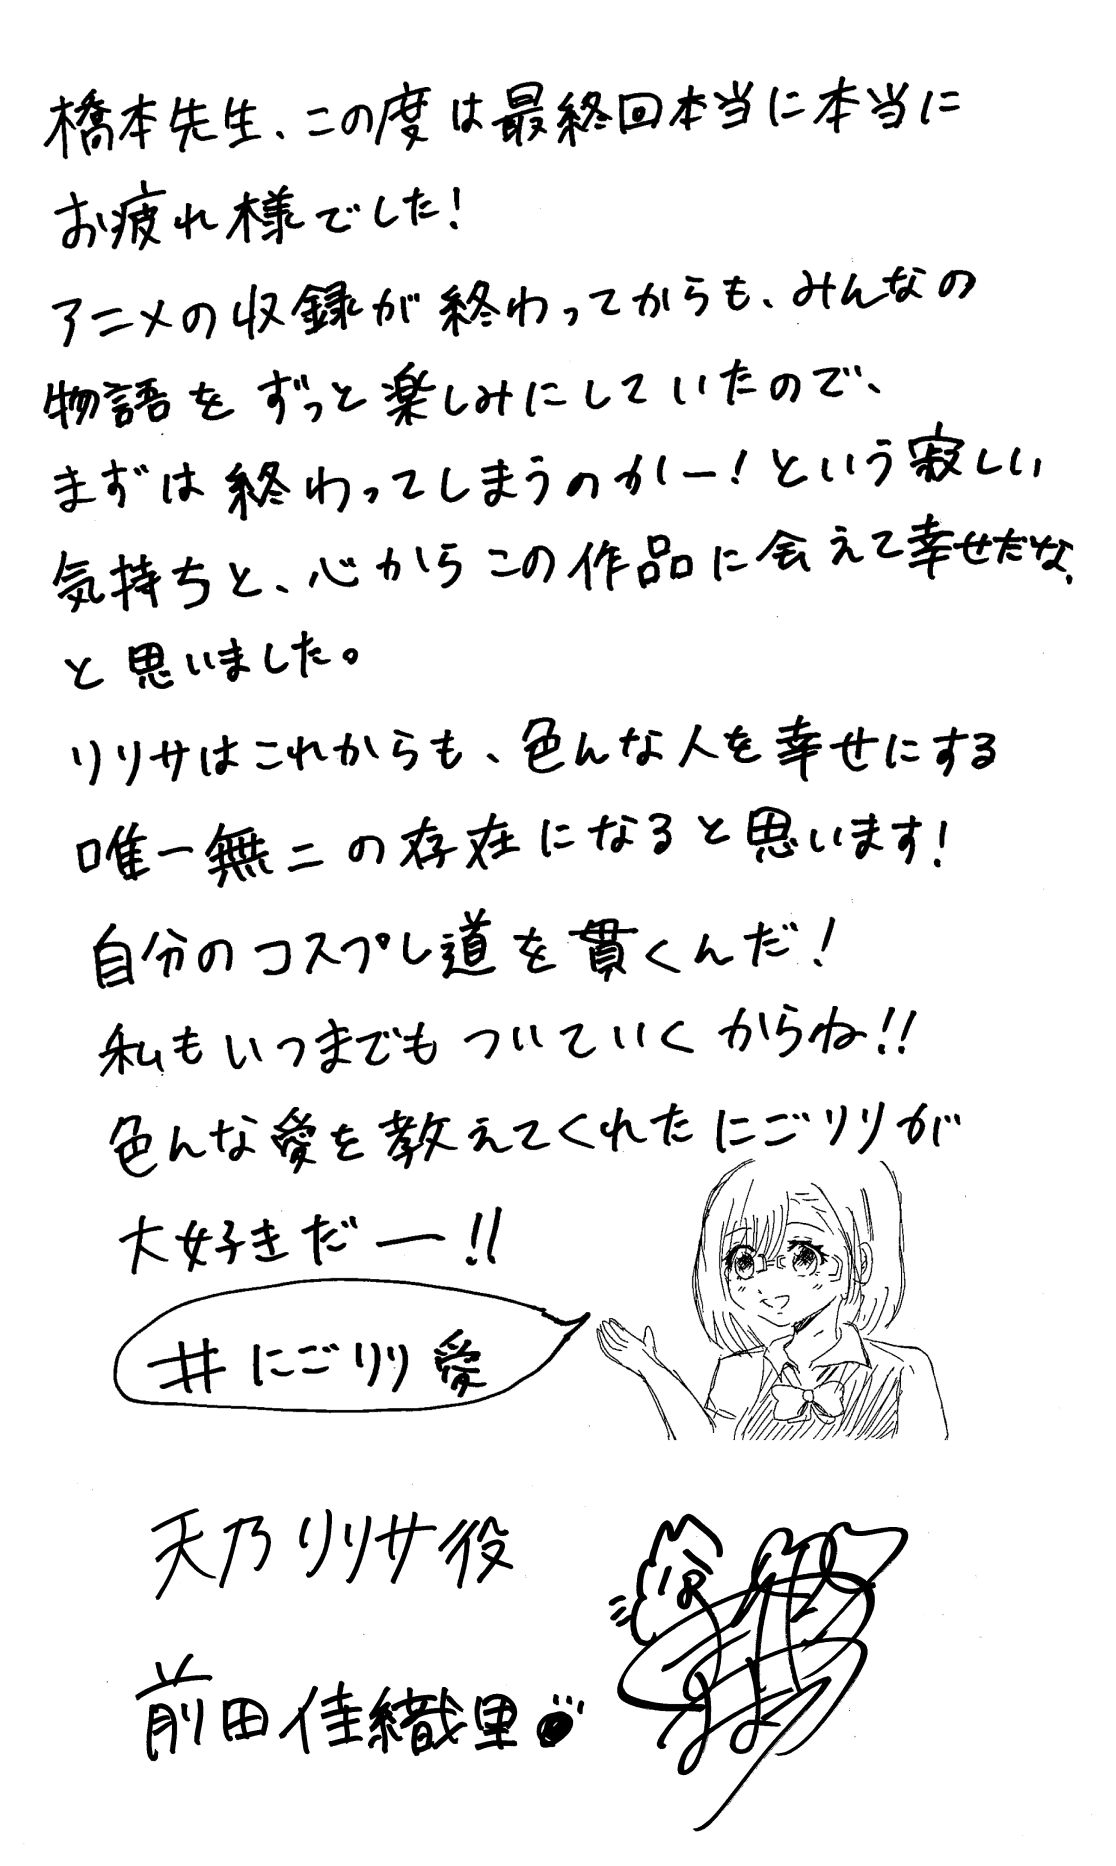 橋本先生、この度は最終回本当に本当に
お疲れ様でした!
アニメの収録が終わってからも、みんなの
物語をずっと楽しみにしていたので、
まずは終わってしまうのかー!という寂しい
気持ちと、心からこの作品に会えて幸せだな、
と思いました。
リリサはこれからも、色んな人を幸せにする
唯一無二の存在になると思います!
自分のコスプレ道を貫くんだ!
私もいつまでもついていくからね!!
色んな愛を教えてくれたにごリリが
大好きだー!!
#にごリリ愛
天乃リリサ役
前田佳織里